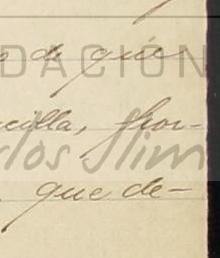 de que
cilla, por-
que de-
DACIÓN
rlos Slim